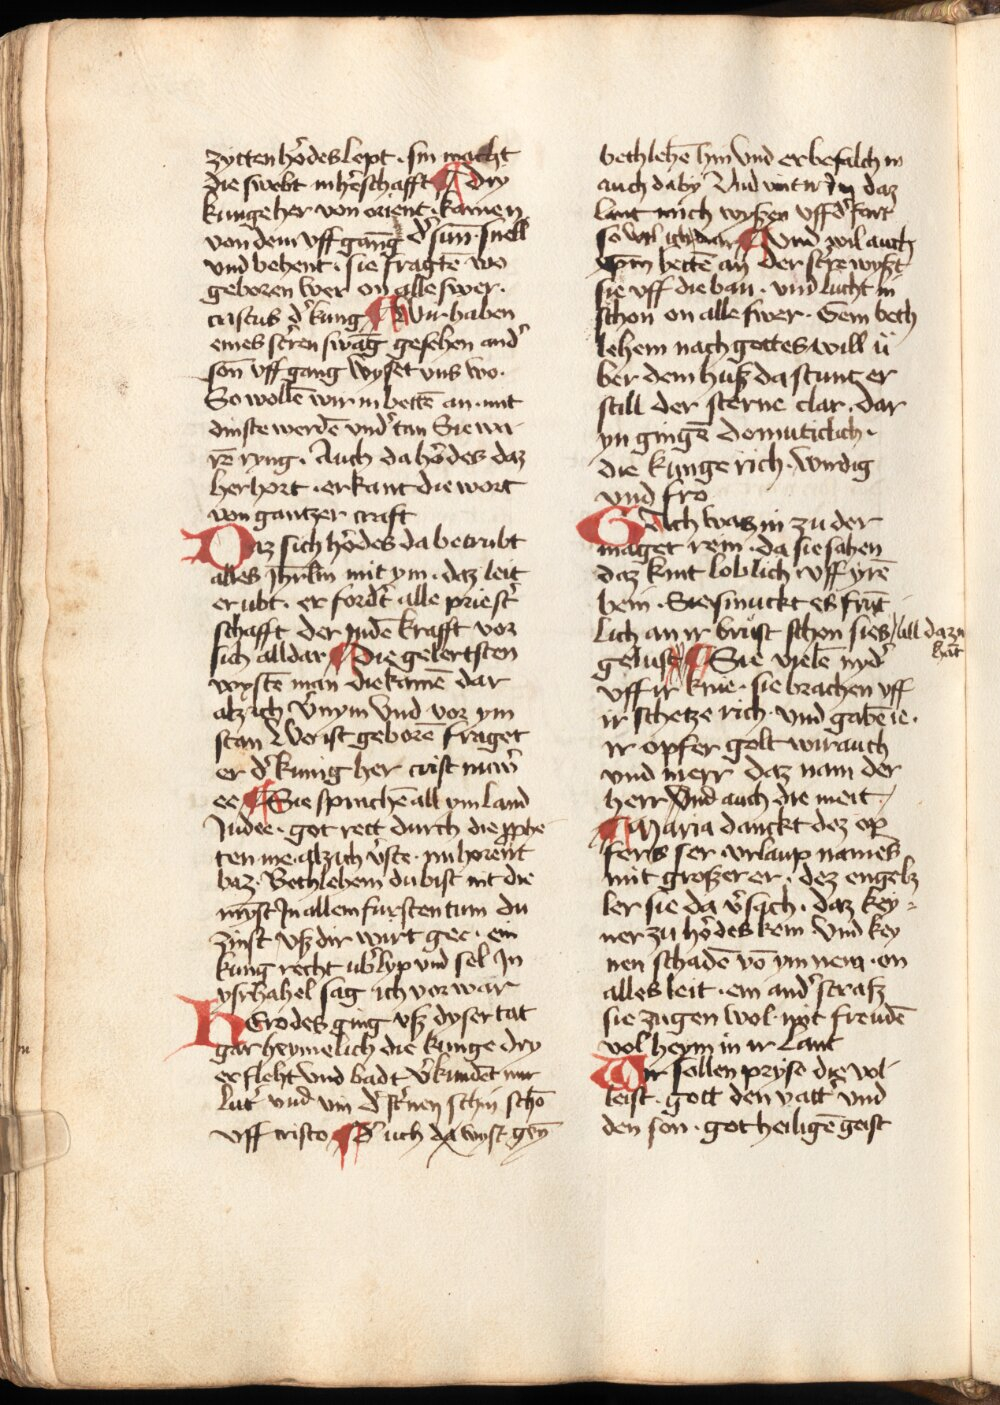 zytten hōdes lept · sin macht
die swebt in hēschafft ¶ dry
kunge her von orient · kamen
von dem uff gang d' sun · snell
und behent · sie fragtē wo
geboren wer on alle swer ·
cristus d' kung ¶ Wir haben
eines steren swāg gesehen and'
son uff gang wyset uns wo ·
So wollē wir in bettē an · mit
dinste werdē und' tan Sie wa-
rē ryng · Auch da hōdes daz
her hort · erkant die wort
von gantzer craft
Daz sich hōdes da betrubt
alles Jhrlm mit ym · daz leit
er ubt · er ford't alle priest'
schafft der judē krafft vor
sich alldar ¶ die gelertsten
wystē man die kamē dar
alz ich v'nym und vor ym
stan Wo ist geborē fraget
er d' kunig her crist
ee ¶ Sie sprachē all ym land
Judee · got rett durch die pphe
ten me · alz ich v'ste · nu horent
baz · Bethlehem du bist nit die
mynst In allem furstentum du
zinst uß dir wirt gee · ein
kung recht ub' lyp und sel In
ysrhahel sag ich vor war
Herodes ging uß dyser tat
gar heymelich die kunge dry
er fleht und badt v'kundēt mir
lut' und um d' st'nen schin schō
uff cristo ¶ uch da wyst
bethlehē hin und er befalch in
auch da by Und daz
lant mich wyßen uff d' fart
so wil ich dar ¶ Und wil auch
bettē an der st're wyst
sie uff die ban · und lucht in
schon on alle swer · Gem beth
lehem nach gottes will u
ber dem huß da stunt er
still der sterne clar · dar
yn gingē demuticlich ·
die kunge rich · wirdig
und fro
Gach waz in zu der
maget rein · da sie sahen
daz kint loblich uff yrē
bein · Sie smuckt es frūt
lich an ir brust schon sies / all dazu
gelust ¶ Sie vielē nyd' hāt
uff ir knie · sie brachen uff
ir schetze rich · und gabē ie ·
ir opfer golt wirauch
und merr daz nam der
herr Und auch die meit /
¶ Maria danckt dez op
fers ser · urlaup names
mit großer er · dez engelz
ler sie da v'sach · daz key-
ner zu hōdes kem Und key
nen schadē vō ym nem · on
alles leit · ein and' straß
sie zugen wol · mit freudē
vol heym in ir lant
Wir sollen pryse die vol-
leist · gott den vatt' und
den son · got heiligē geist